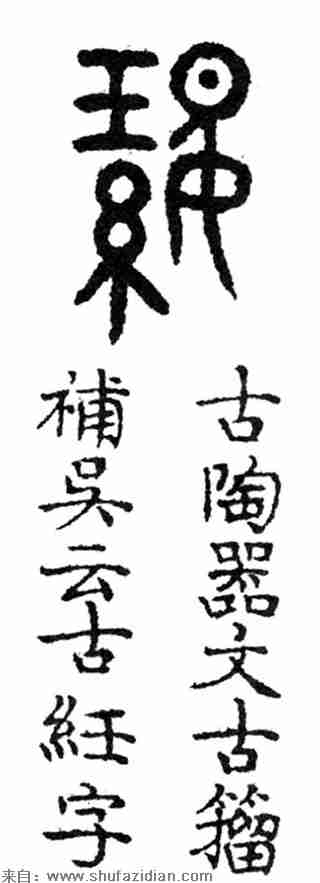 古陶器文古籀
補吳云古紝字
来自：www.shufazidian.com